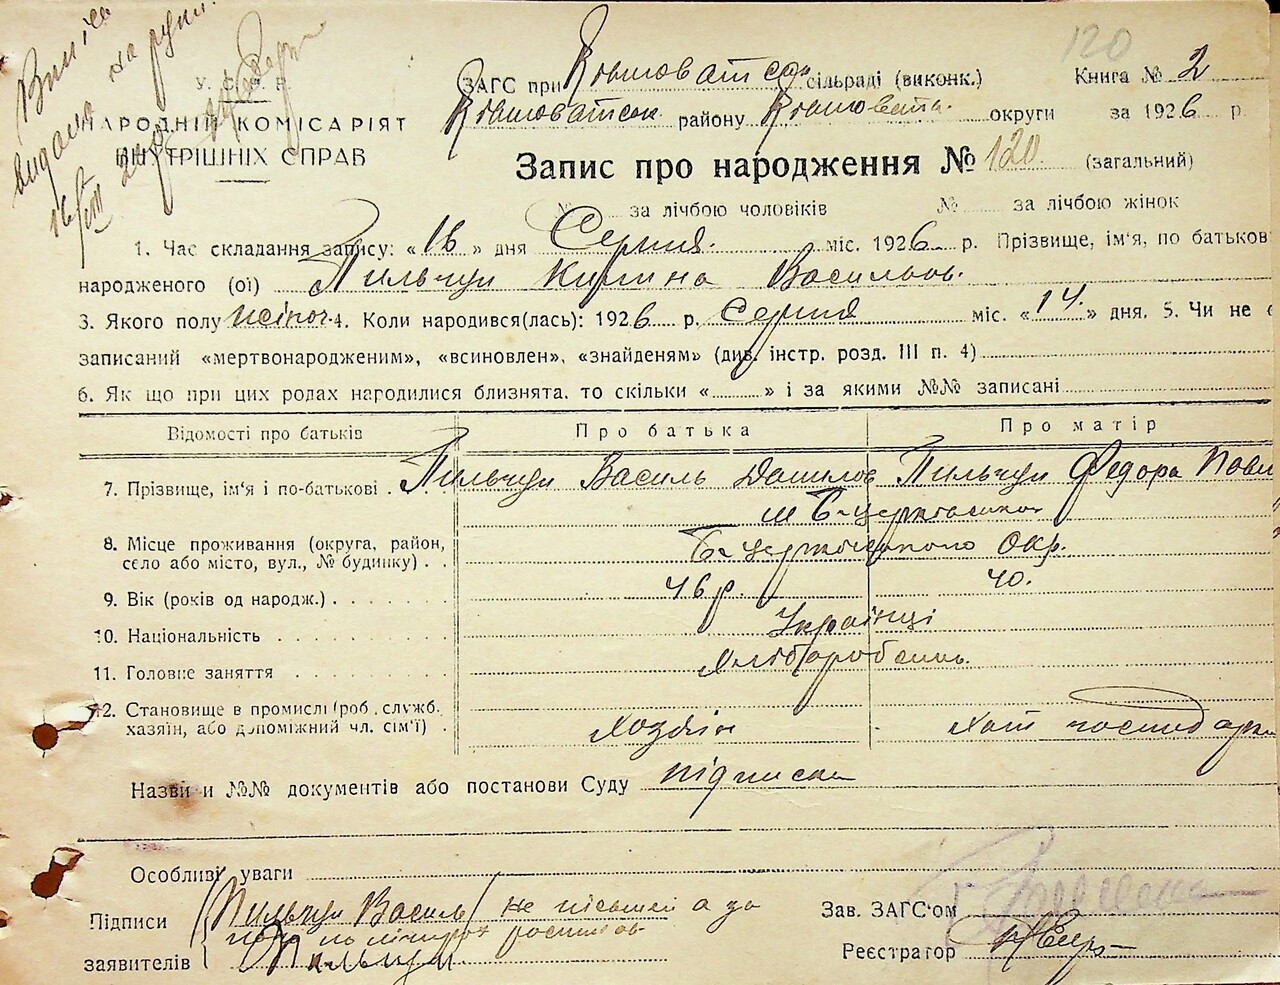 120
У. С. Р. Р.
НАРОДНІЙ КОМІСАРІЯТ
ВНУТРІШНІХ СПРАВ
Випис
видано на руки
16/VIII 26 р.
ЗАГС при сільраді (виконк.) Книга № 2
району округи за 1926 р.
Запис про народження № 120 (загальний)
№ за лічбою чоловіків № за лічбою жінок
1. Час складання запису: «16» дня Серпня міс. 1926 р. Прізвище, ім'я, по батьков
народженого (ої) Пильчук Василь
3. Якого полу жіноч. 4. Коли народився(лась): 1926 р. Серпня міс. «14» дня. 5. Чи не є
записаний «мертвонародженим», «всиновлен», «знайденям» (див. інстр. розд. III п. 4)
6. Як що при цих родах народилися близнята, то скільки «» і за якими №№ записані
Відомості про батьків Про батька Про матір
7. Прізвище, ім'я і по-батькові Пильчук Василь Данилов Пильчук Федора Павл
м Б-Церківського
8. Місце проживання (округа, район, Б-Церківського Окр.
село або місто, вул., № будинку)
9. Вік (років од народж.) 46 р. 40.
10. Національність Українці
11. Головне заняття Хліборобська
12. Становище в промислі (роб., службˌ
хазяїн, або допоміжний чл. сім'ї) Хозяїн Хат господарка
Назви и №№ документів або постанови Суду підписка
Особливі уваги
Підписи Пильчук Василь не письмен а за
заявителів Пильчук
Зав. ЗАГС'ом
Реєстратор